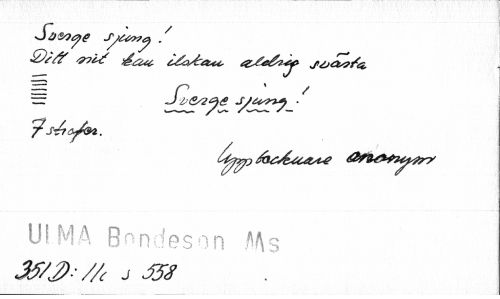 Sverge sjung!
Ditt nit kan ilskan aldrig svärta
Sverge sjung!
7 strofer.
Upptecknare anonym
ULMA Bondeson Ms
351 D: 11c s 558